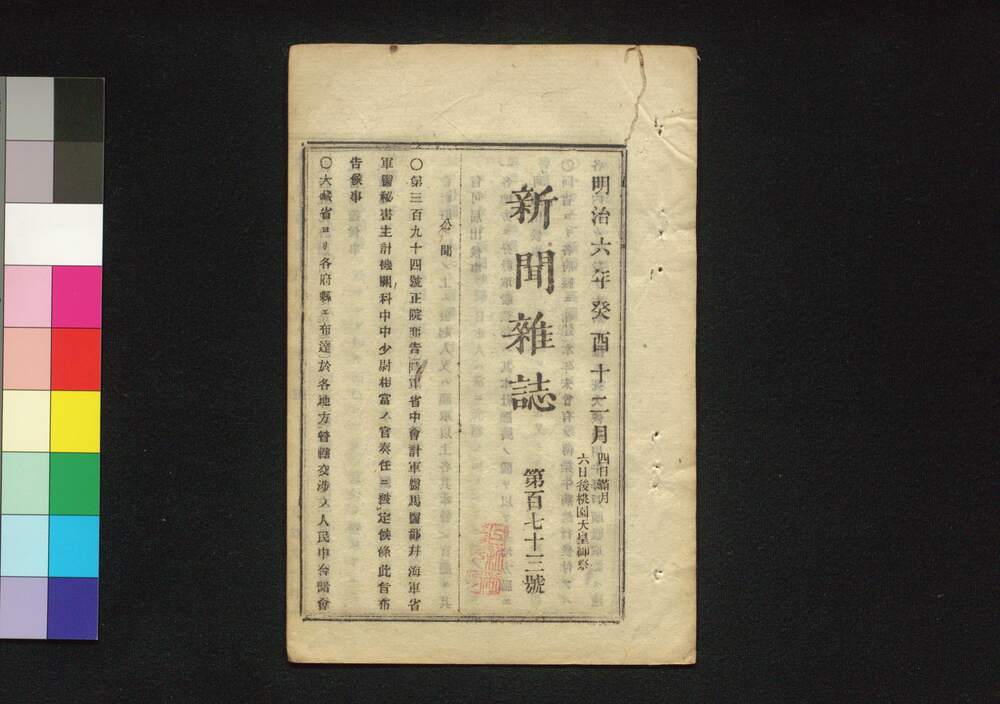 明治六年癸酉十二月
四日満月
六日後桃園天皇御祭
新聞雑誌
第百七十三號
公聞
○第三百九十四號正院布告陸軍省中會計軍醫馬醫部幷海軍省
軍醫秘書主計機關科中中少尉相當ノ官奏任ニ被定候條此旨布
告候事
○大藏省ヨリ各府縣ヘ布達於各地方管轄交渉之人民申合諸會